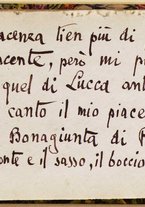 acenza tien più di
acente, però mi p
quel di Lucca ant
canto il mio piace
Bonagiunta di
onte e il sasso, il boccio